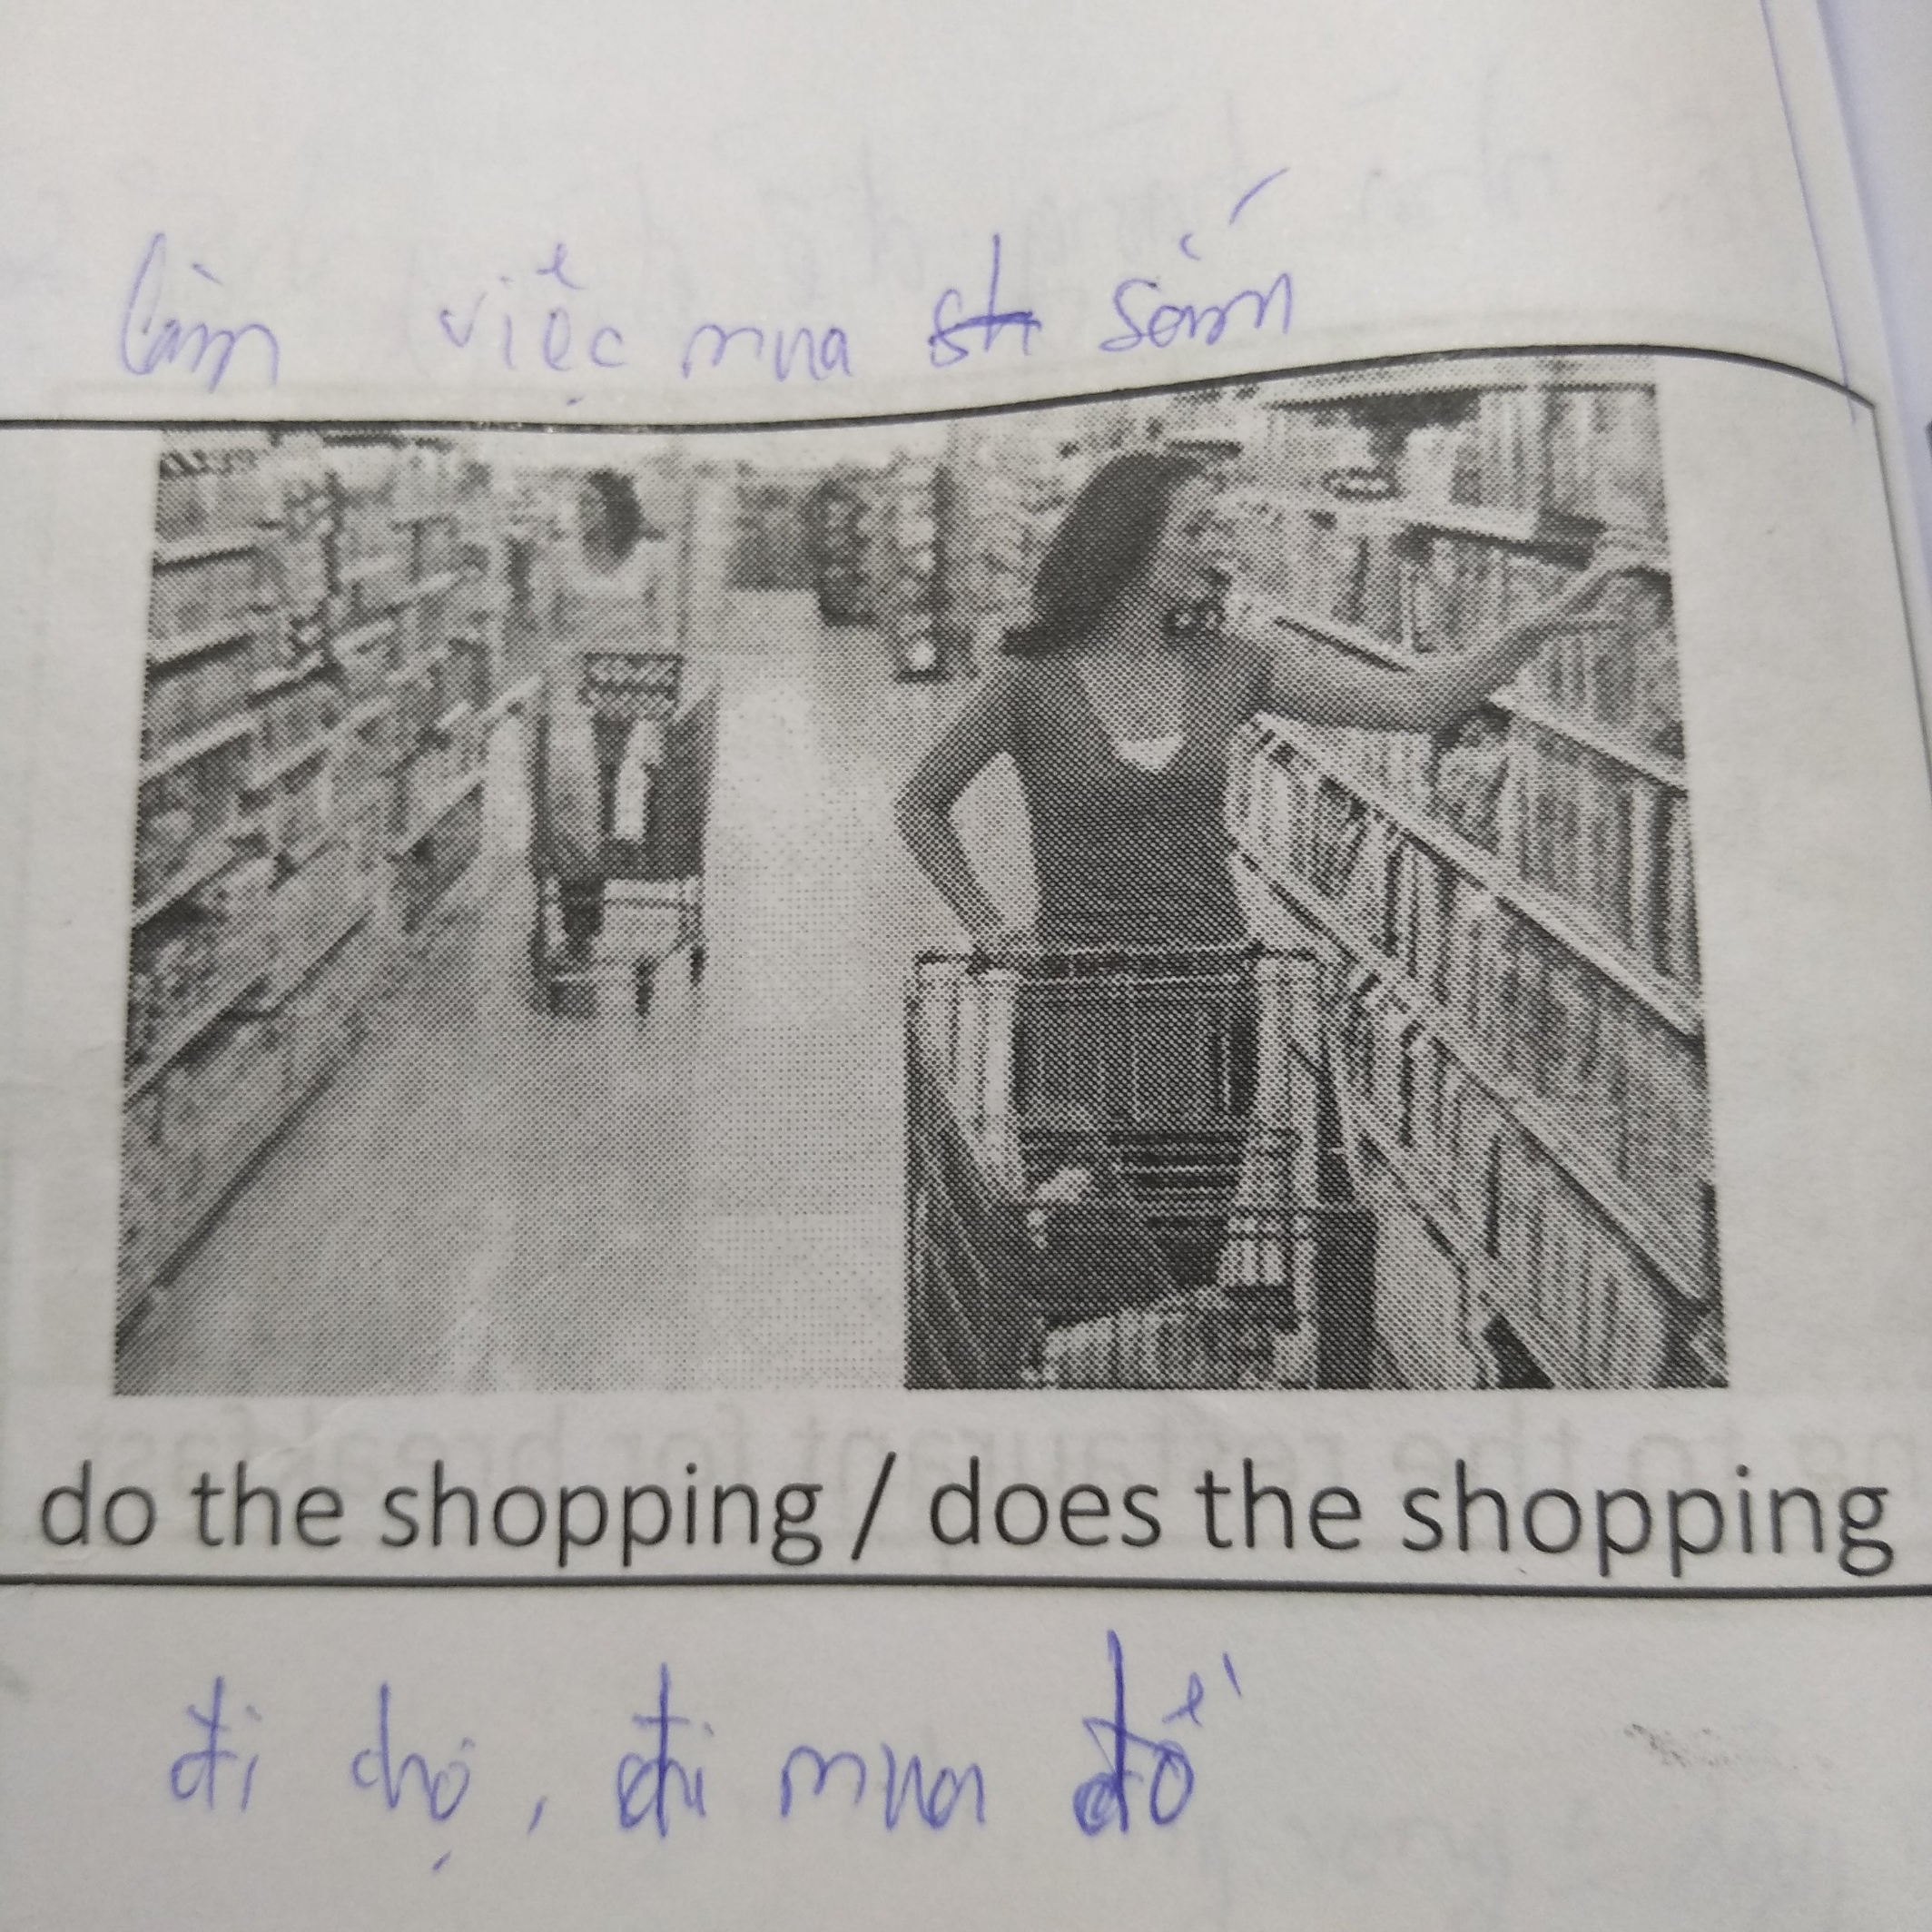 làm việc mua sh sắm
do the shopping / does the shopping
đi chợ, đi mua đồ